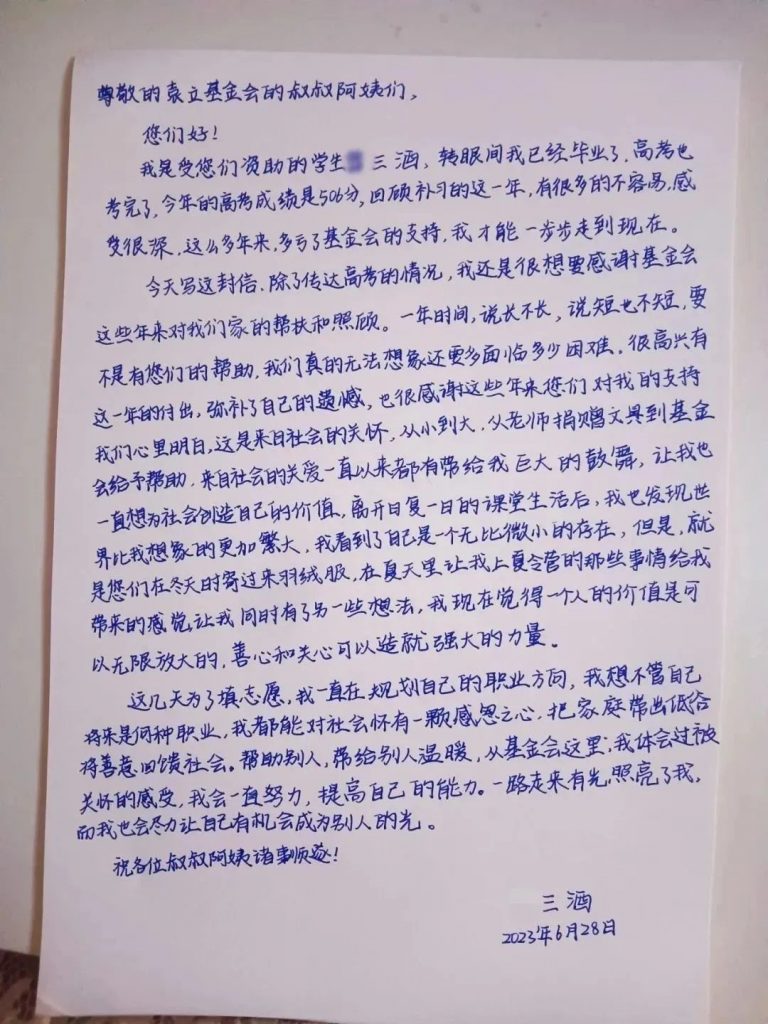 尊敬的袁立基金会的叔叔阿姨们,
您们好!
我是受您们资助的学生 三酒, 转眼间我已经毕业了, 高考也
考完了, 今年的高考成绩是506分, 回顾补习的这一年, 有很多的不容易, 感
受很深, 这么多年来, 多亏了基金会的支持, 我才能一步步走到现在。
今天写这封信, 除了传达高考的情况, 我还是很想要感谢基金会
这些年来对我们家的帮扶和照顾。一年时间, 说长不长, 说短也不短, 要
不是有您们的帮助, 我们真的无法想象还要多面临多少困难。很高兴有
这一年的付出, 弥补了自己的遗憾, 也很感谢这些年来您们对我的支持
我们心里明白, 这是来自社会的关怀, 从小到大, 从老师捐赠文具到基金
会给予帮助, 来自社会的关爱一直以来都有带给我巨大的鼓舞, 让我也
一直想为社会创造自己的价值, 离开日复一日的课堂生活后, 我也发现世
界比我想象的更加繁大, 我看到了自己是一个无比微小的存在, 但是, 就
是您们在冬天时寄过来羽绒服, 在夏天里让我上夏令营的那些事情给我
带来的感觉让我同时有了另一些想法, 我现在觉得一个人的价值是可
以无限放大的, 善心和关心可以造就强大的力量。
这几天为了填志愿, 我一直在规划自己的职业方向, 我想不管自己
将来是何种职业, 我都能对社会怀有一颗感恩之心, 把家庭带出低谷
将善意回馈社会。帮助别人, 带给别人温暖, 从基金会这里, 我体会过被
关怀的感受, 我会一直努力, 提高自己的能力。一路走来有光照亮了我,
而我也会尽力让自己有机会成为别人的光。
祝各位叔叔阿姨诸事顺遂!
三酒
2023年6月28日